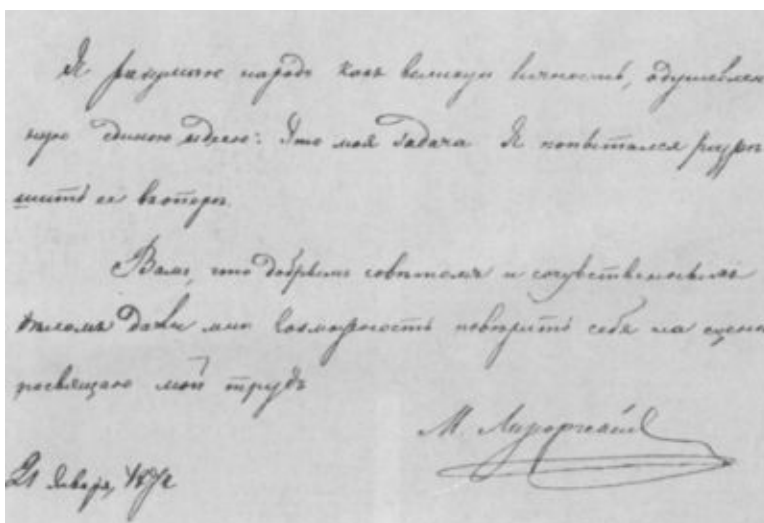 Я разумѣю народъ какъ великую личность, одушевлен
ную единою идеею: Это моя задача Я попытался разрѣ
шить ее въ оперѣ.
Вамъ, что добрымъ совѣтомъ и сочувственнымъ
дѣломъ дали мнѣ возможность повѣрить себя на сценѣ
посвящаю мой трудъ
М.
21 Января,